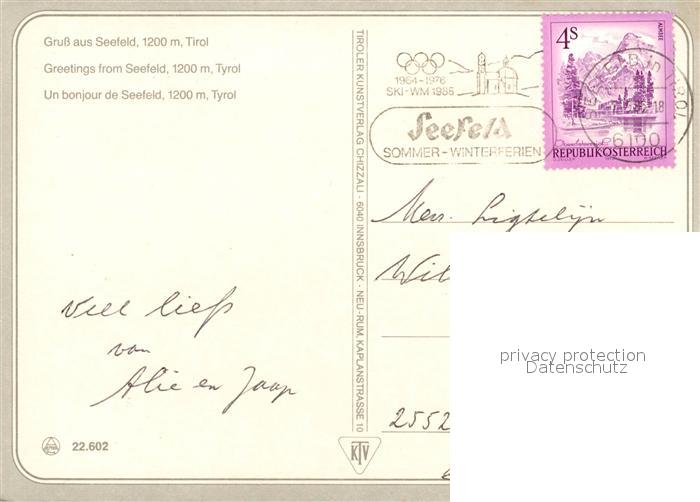 Gruß aus Seefeld, 1200 m, Tirol
Greetings from Seefeld, 1200 m, Tyrol
Un bonjour de Seefeld, 1200 m, Tyrol
1964-1976
SKI-WM 1985
Seefeld
SOMMER-WINTERFERIEN
4S
ALMSEE
6100
REPUBLIK ÖSTERREICH
TIROLER KUNSTVERLAG CHIZZALI · 6040 INNSBRUCK · NEU-RUM, KAPLANSTRASSE 10
veel liefs
van
Alie en Jaap
Wil
2552
22.602
KTV
privacy protection
Datenschutz